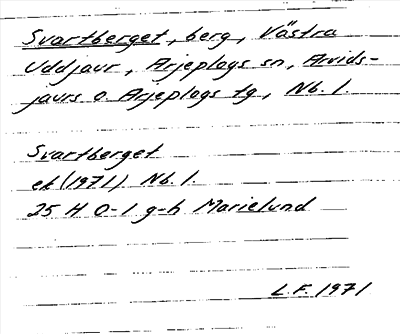 Svartberget, berg, Västra
Uddjaur, Arjeplogs sn, Arvids-
jaurs o. Arjeplogs tg, Nb. l.
Svartberget
ek (1971) Nb. l.
25 H 0-1 g-h Marielund
L.F. 1971